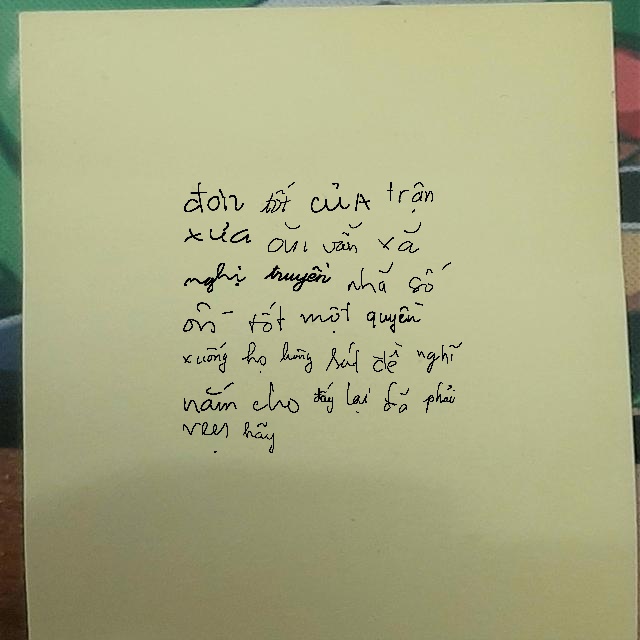 đơn tốt của trận
xưa vẫn xã
nghị truyền nhã số
tốt một quyền
xuống họ hồng sút đề nghĩ
năm cho đấy lại đã phải
vẹn hãy